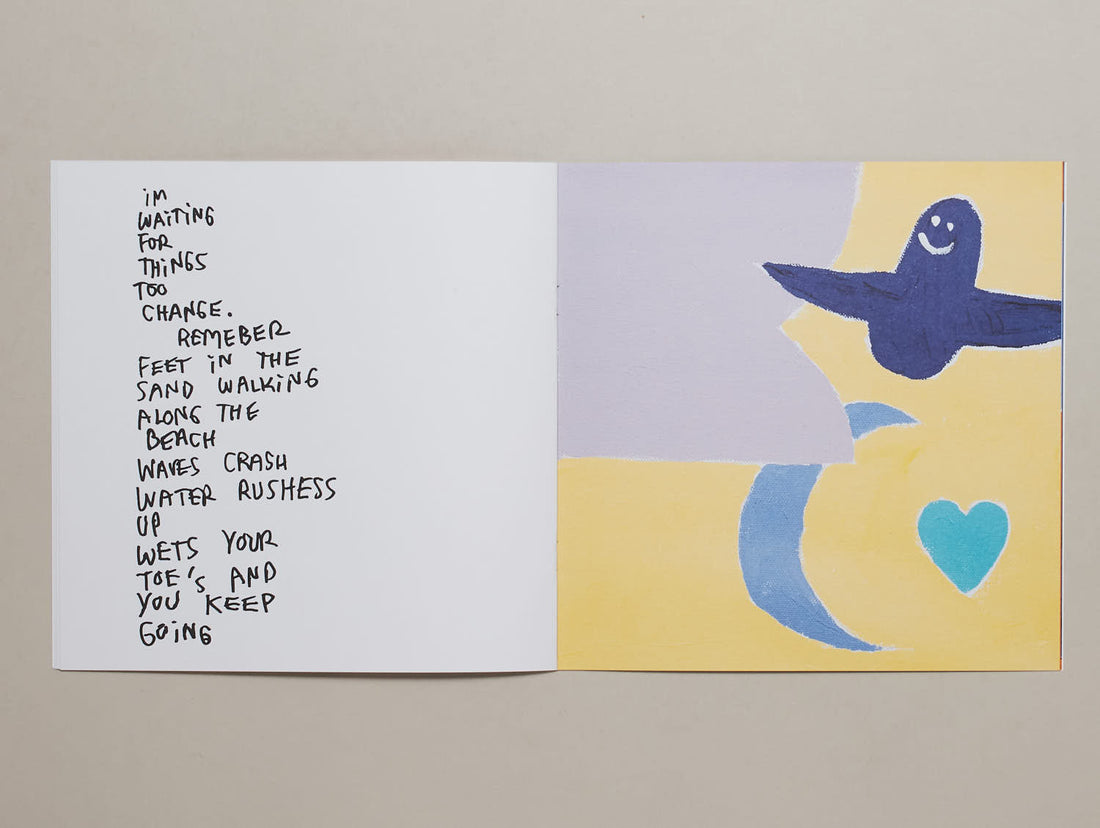 iM
WAiTiNG
FOR
THiNGS
TOO
CHANGE.
REMEBER
FEET iN THE
SAND WALKiNG
ALONG THE
BEACH
WAVES CRASH
WATER RUSHESS
UP
WETS YOUR
TOE'S AND
YOU KEEP
GOiNG